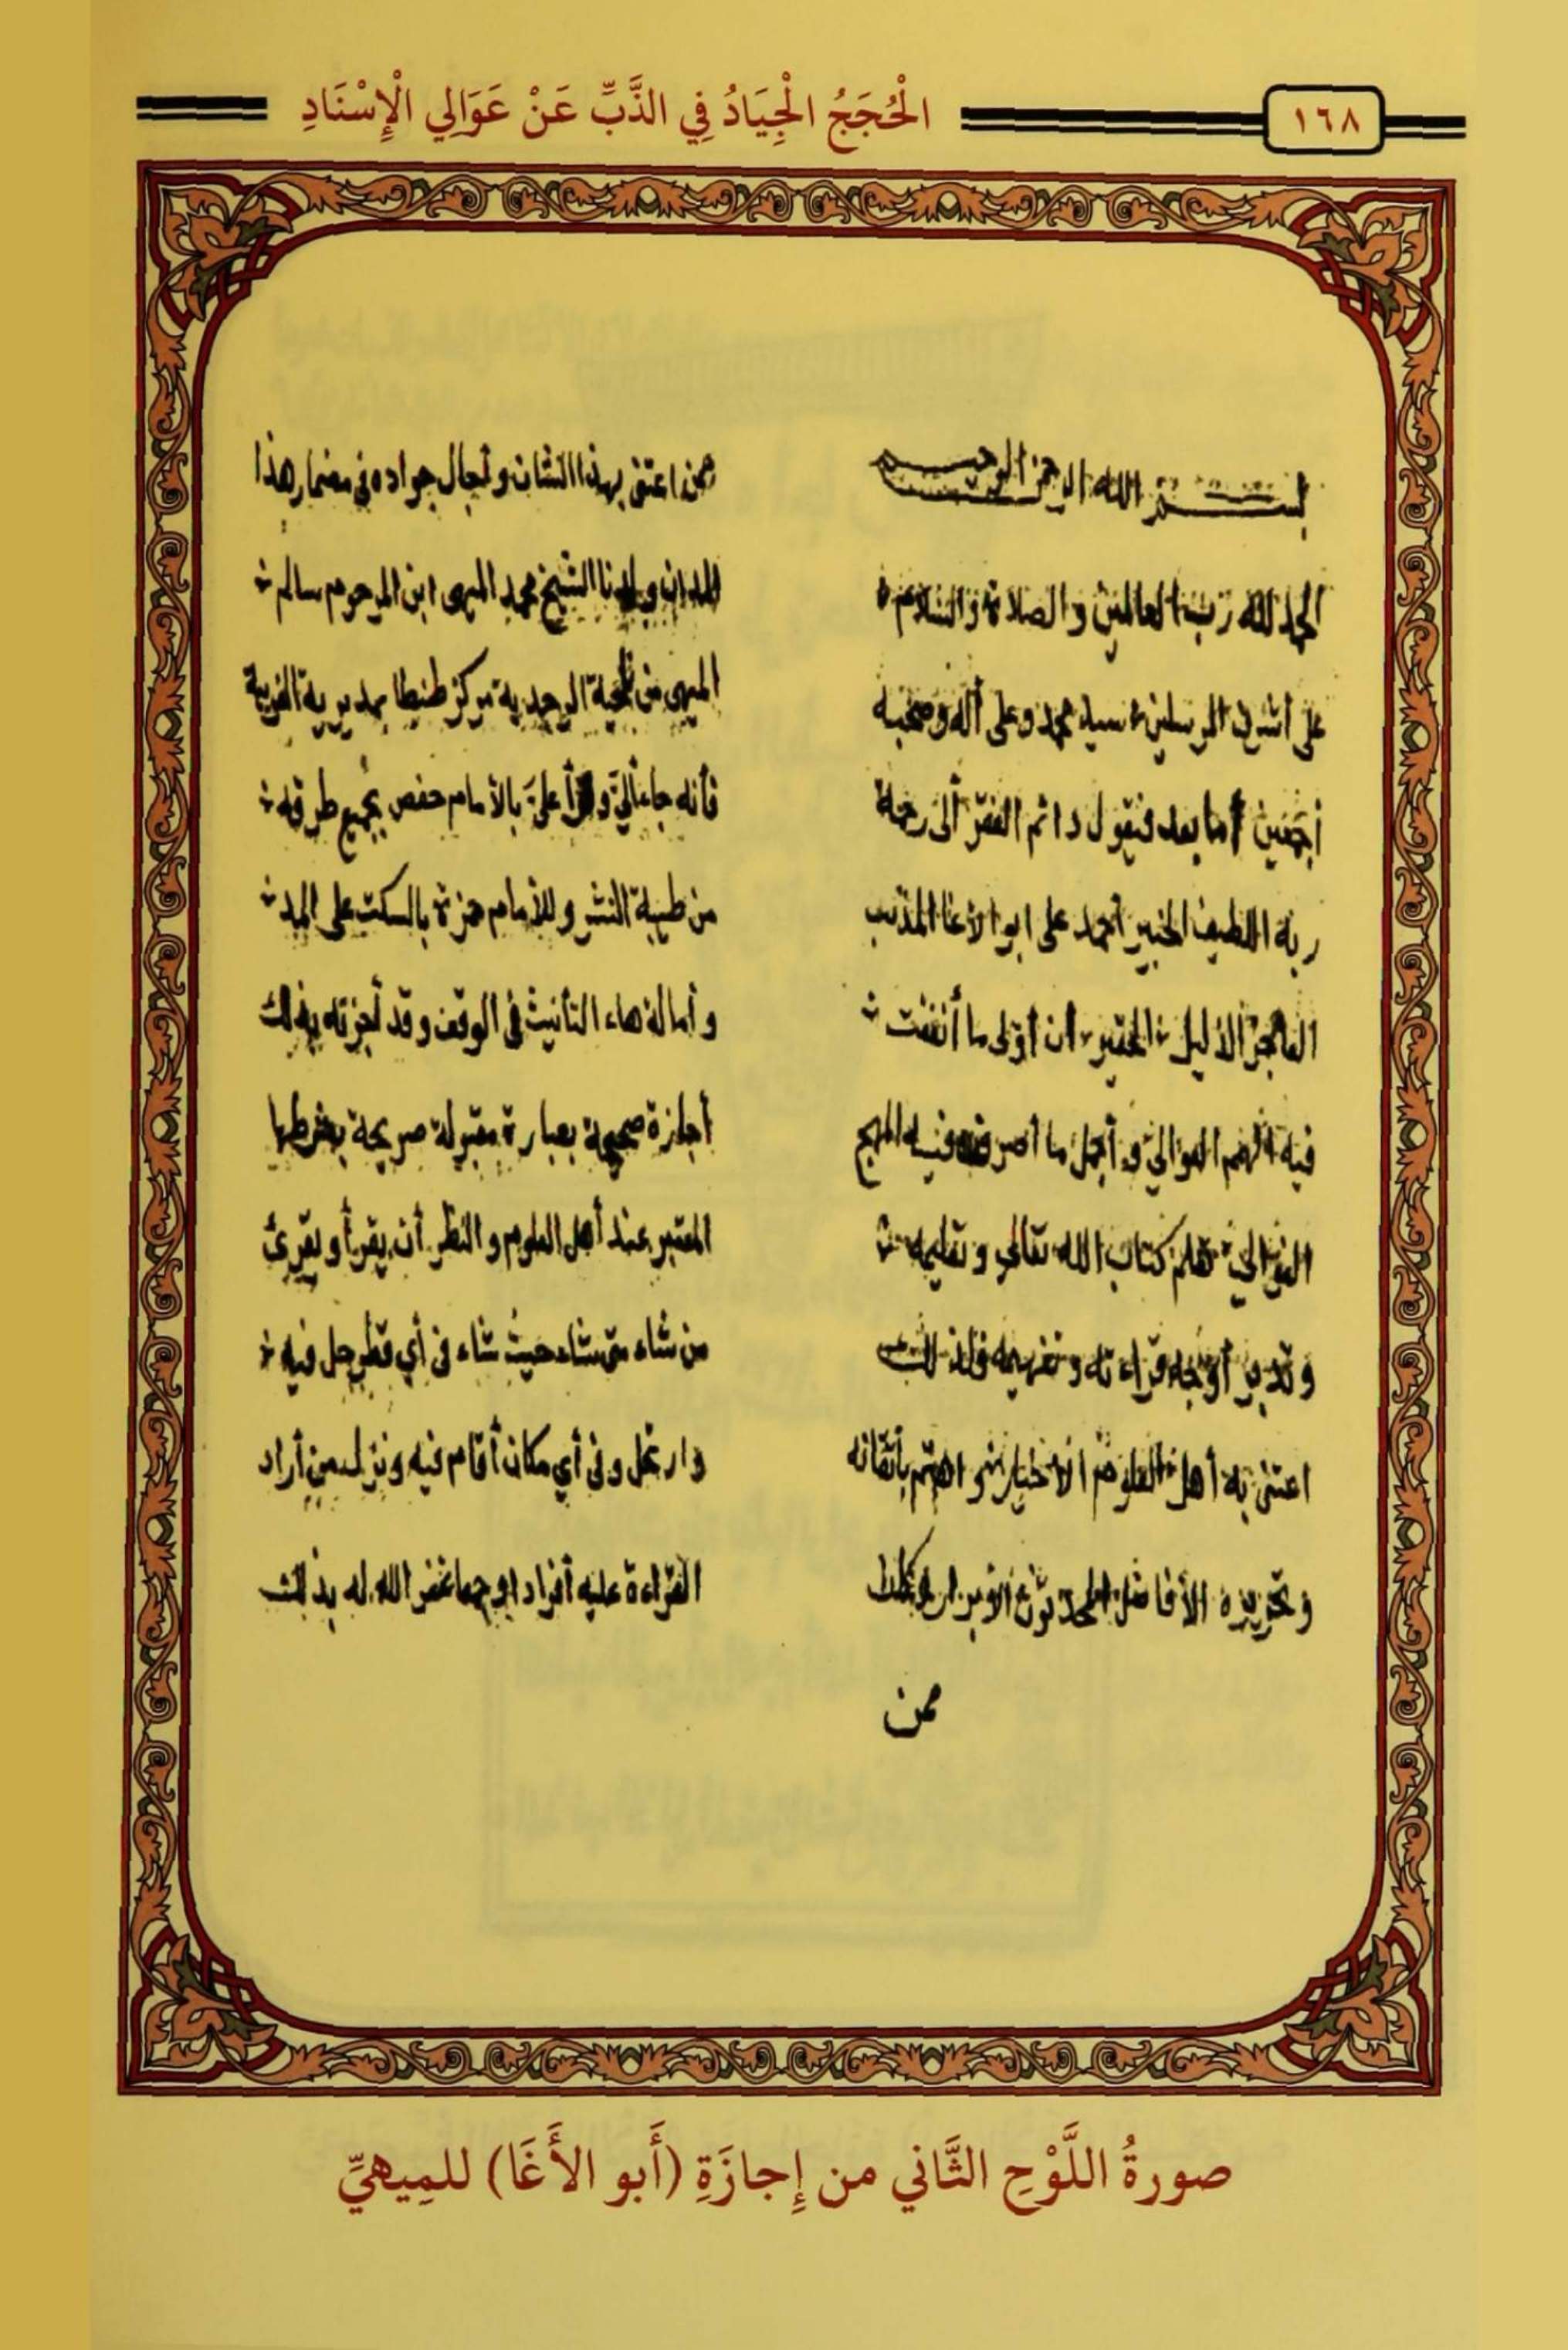 ١٦٨
الْحُجَجُ الْجِيَادُ فِي الذَّبِّ عَنْ عَوَالِي الْإِسْنَادِ
بسم الله الرحمن الرحيم
الحمد لله رب العالمين والصلاة والسلام
على أشرف المرسلين سيد محمد وعلى أله وصحبه
أجمعين أما بعد فيقول دائم الفقر ألى رحمة
ربه اللطيف الخبير أحمد على ابو الاغا المذنب
العاجز الذليل الحقير أن أولى ما أنفقت
فيه الهمم العوالي و أجمل ما
الغوالي تعلم كتاب الله تعالى و تعليمه
و تدبر أوجه قراءته و تفهيمه فلذلك
اعتنى به أهل العلوم الاخيار و اهتم بأتقانه
و تحريره الأفاضل
ممن
ممن اعتنى بهذا الشان و أجال جواده في مضمار هذا
الميدان ولدنا الشيخ محمد الميهى ابن المرحوم سالم
الميهى من مركز طنطا بمديرية الغربية
فأنه جاء ألىّ و قرأ علىّ بالأمام حفص بجميع طرقه
من طيبة النشر و للأمام حمزة بالسكت على المد
و أمالة هاء التأنيث فى الوقف و قد أجزته بذلك
أجازة صحيحة بعبارة مقبولة صريحة بشرطها
المعتبر عند أهل العلوم و النظر أن يقرأ و يقرئ
من شاء متى شاء حيث شاء فى أي قطر حل فيه
و ارتحل و فى أي مكان أقام فيه و نزل من أراد
القراءة عليه أفراد او جمعا غفر الله له بذلك
صورةُ اللَّوْحِ الثَّاني من إِجازَةِ (أَبو الأَغَا) للمِيهيِّ